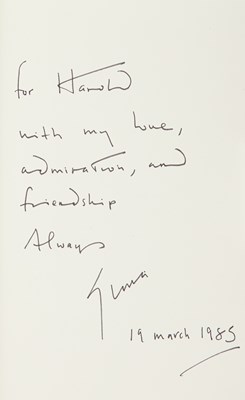 for Harold
with my love,
admiration, and
friendship
Always
19 march 1985